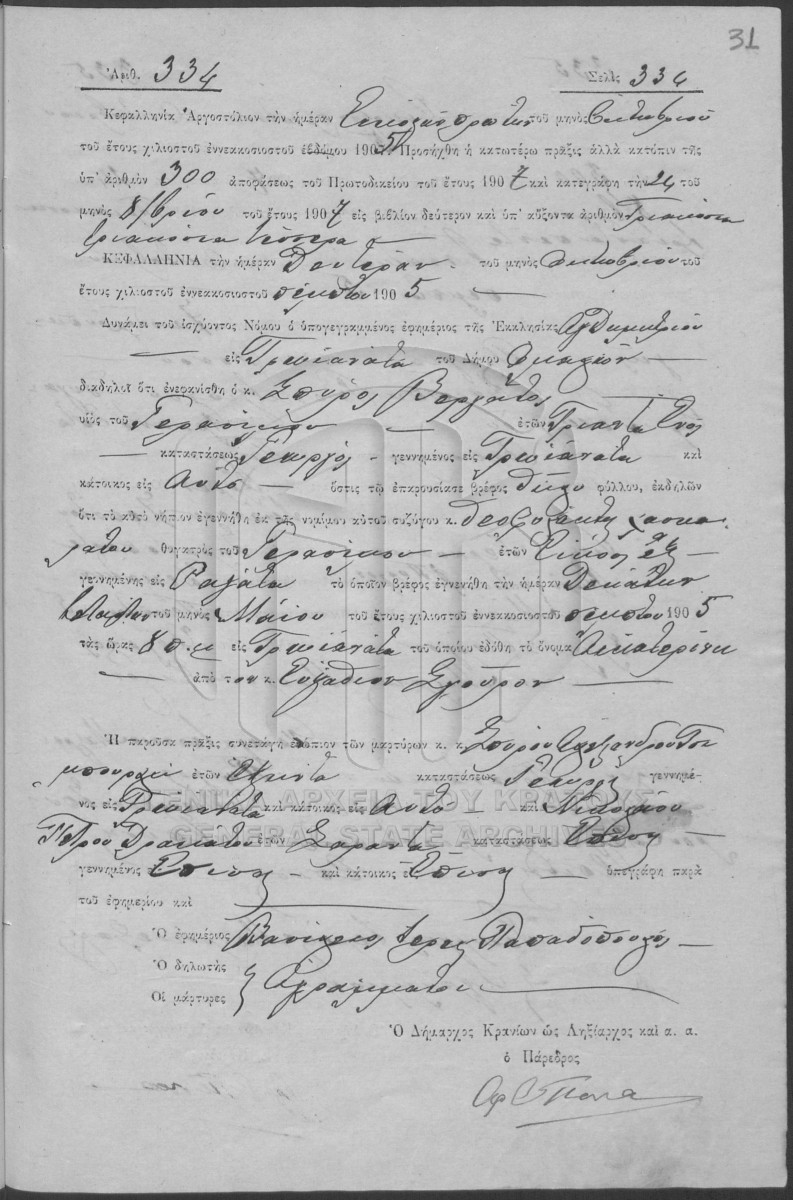 31
Ἀριθ. 334 Σελὶς 334
Κεφαλληνία Ἀργοστόλιον τὴν ἡμέραν Εἰκοστὴν πρώτην τοῦ μηνὸς Ὀκτωβρίου
τοῦ ἔτους χιλιοστοῦ ἐννεακοσιοστοῦ ἑβδόμου 1907. Προσήχθη ἡ κατωτέρω πρᾶξις ἀλλὰ κατόπιν τῆς
ὑπ' ἀριθμὸν 300 ἀποφάσεως τοῦ Πρωτοδικείου τοῦ ἔτους 1907 καὶ κατεγράφη τὴν 24 τοῦ
μηνὸς 8/βρίου τοῦ ἔτους 1907 εἰς βιβλίον δεύτερον καὶ ὑπ' αὔξοντα ἀριθμὸν Τριακόσια
τριακόντα τέσσερα
ΚΕΦΑΛΛΗΝΙΑ τὴν ἡμέραν Δευτέραν τοῦ μηνὸς Ὀκτωβρίου τοῦ
ἔτους χιλιοστοῦ ἐννεακοσιοστοῦ πέμπτου 1905
Δυνάμει τοῦ ἰσχύοντος Νόμου ὁ ὑπογεγραμμένος ἐφημέριος τῆς Ἐκκλησίας Ἁγ Δημητρίου
εἰς Τρωϊανάτα τοῦ Δήμου Ὁμαλῶν
διαδηλοῖ ὅτι ἐνεφανίσθη ὁ κ. Σπύρος Βεργῶτος
υἱὸς τοῦ Γερασίμου ἐτῶν Τριάντα ἑνὸς
καταστάσεως Γεωργὸς γεννημένος εἰς Τρωϊανάτα καὶ
κάτοικος εἰς Αὐτὸ ὅστις τῷ ἐπαρουσίασε βρέφος θήλυ φύλλου, ἐκδηλῶν
ὅτι τὸ αὐτὸ νήπιον ἐγεννήθη ἐκ τῆς νομίμου αὐτοῦ συζύγου κ.
θυγατρὸς τοῦ Γερασίμου ἐτῶν Εἴκοσι ἓξ
γεννημένης εἰς Ραζάτα τὸ ὁποῖον βρέφος ἐγεννήθη τὴν ἡμέραν Δεκάτην
τοῦ μηνὸς Μαΐου τοῦ ἔτους χιλιοστοῦ ἐννεακοσιοστοῦ πέμπτου 1905
τὰς ὥρας 8 π.μ εἰς Τρωϊανάτα τοῦ ὁποίου ἐδόθη τὸ ὄνομα Αἰκατερίνη
ἀπὸ τὸν κ. Εὐστάθιον Σγοῦρον
Ἡ παροῦσα πρᾶξις συνετάγη ἐνώπιον τῶν μαρτύρων κ. κ. Σπύρου Ἀλεξάνδρου Τσι
μπουράκι ἐτῶν καταστάσεως Γεωργὸς γεννημέ-
νος εἰς Τρωϊανάτα καὶ κάτοικος εἰς Αὐτὸ καὶ Νικολάου
Πέτρου ἐτῶν Σαράντα καταστάσεως Ἐπίσης
γεννημένος Ἐπίσης καὶ κάτοικος εἰς Ἐπίσης ὑπεγράφη παρὰ
τοῦ ἐφημερίου καὶ
Ὁ ἐφημέριος Βασίλειος Ἱερεὺς Παπαδόπουλος
Ὁ δηλωτὴς
Οἱ μάρτυρες ἀγράμματοι
Ὁ Δήμαρχος Κρανίων ὡς Ληξίαρχος καὶ α. α.
ὁ Πάρεδρος
ΓΕΝΙΚΑ ΑΡΧΕΙΑ ΤΟΥ ΚΡΑΤΟΥΣ
GENERAL STATE ARCHIVES